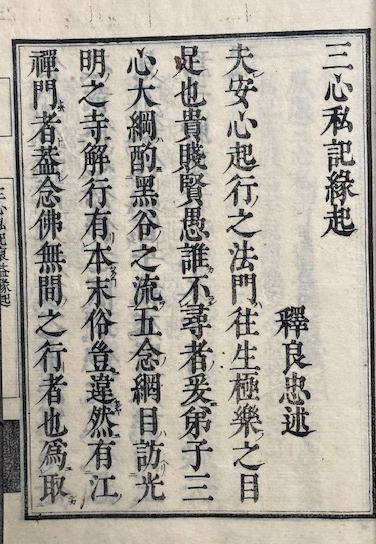 三心私記緣起
釋良忠述
夫安心起行之法門往生極樂之目
足也貴賤賢愚誰不尋者爰弟子三
心大綱酌黑谷之流五念綱目訪光
明之寺解行有本末俗豈違然有江
禪門者葢念佛無間之行者也爲取